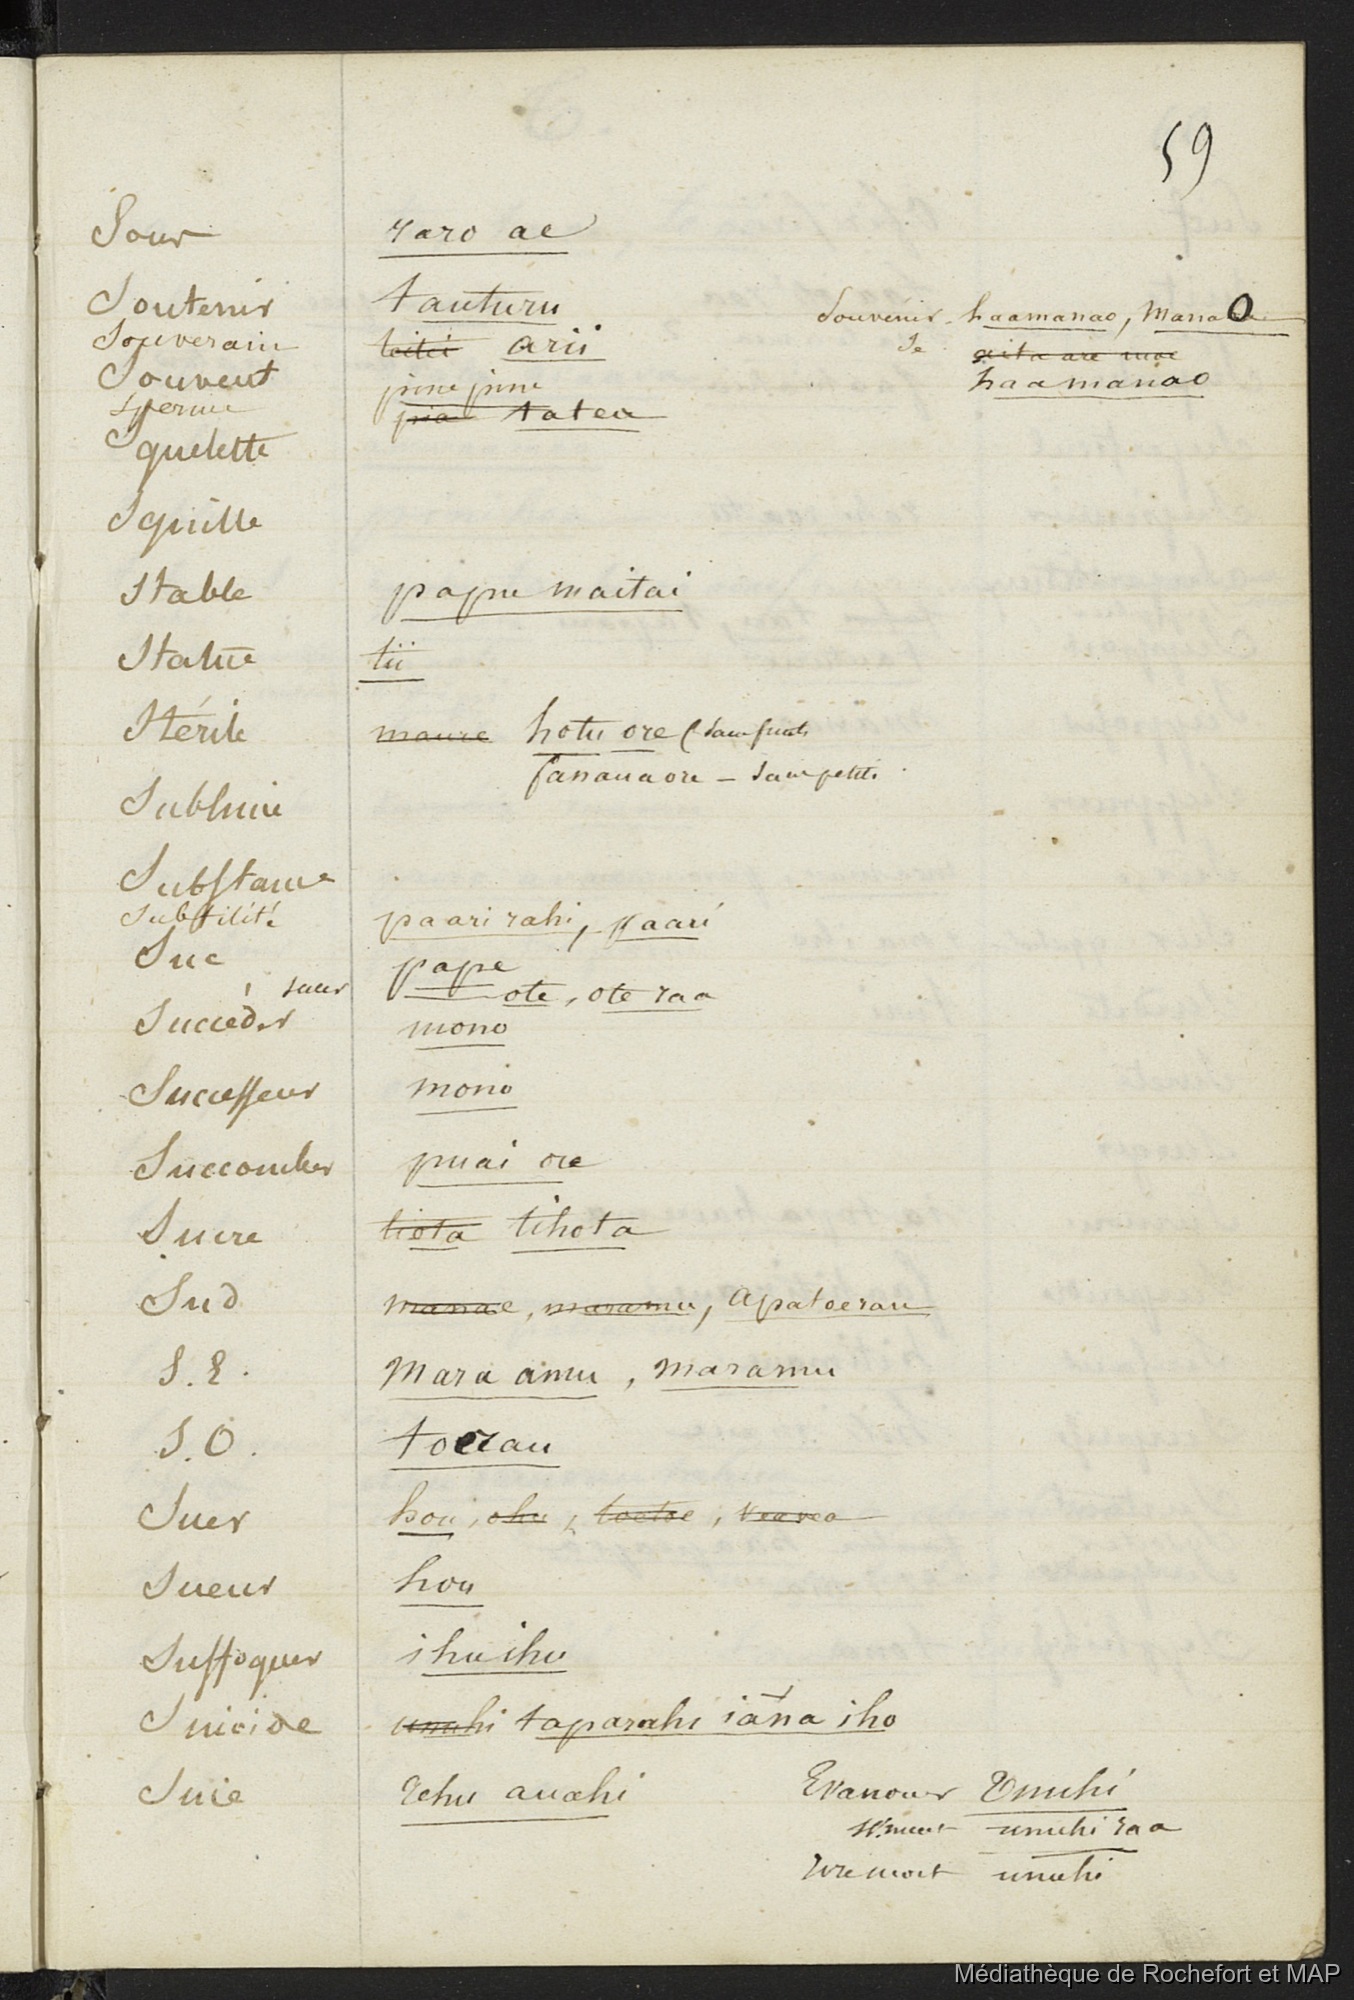 59
Sous raro ae
Soutenir tauturu Souvenir haamanao, manao
Souverain arii Se aita are moe
Souvent pinepine haamanao
Sperme pia tatea
Squelette
Squille
Stable papu maitai
Statue tii
Stérile maure hotu ore (sans fruits
fanaua ore – sans petits
Sublime
Substance
Subtilité paari rahi, paari
Suc pape
sucer ote, ote raa
Succéder mono
Successeur mono
Succomber puai ore
Sucre tiota tihota
Sud manae, maramu, Apatoerau
S.E. Mara amu, maramu
S.O. toerau
Suer hou, ohu, toetoe, veavea
Sueur hou
Suffoquer ihuihu
Suicide unuhi taparahi iana iho
Suie Rehu auahi Evanouir Unuhi
unuhi raa
Ivre mort unuhi
Médiathèque de Rochefort et MAP